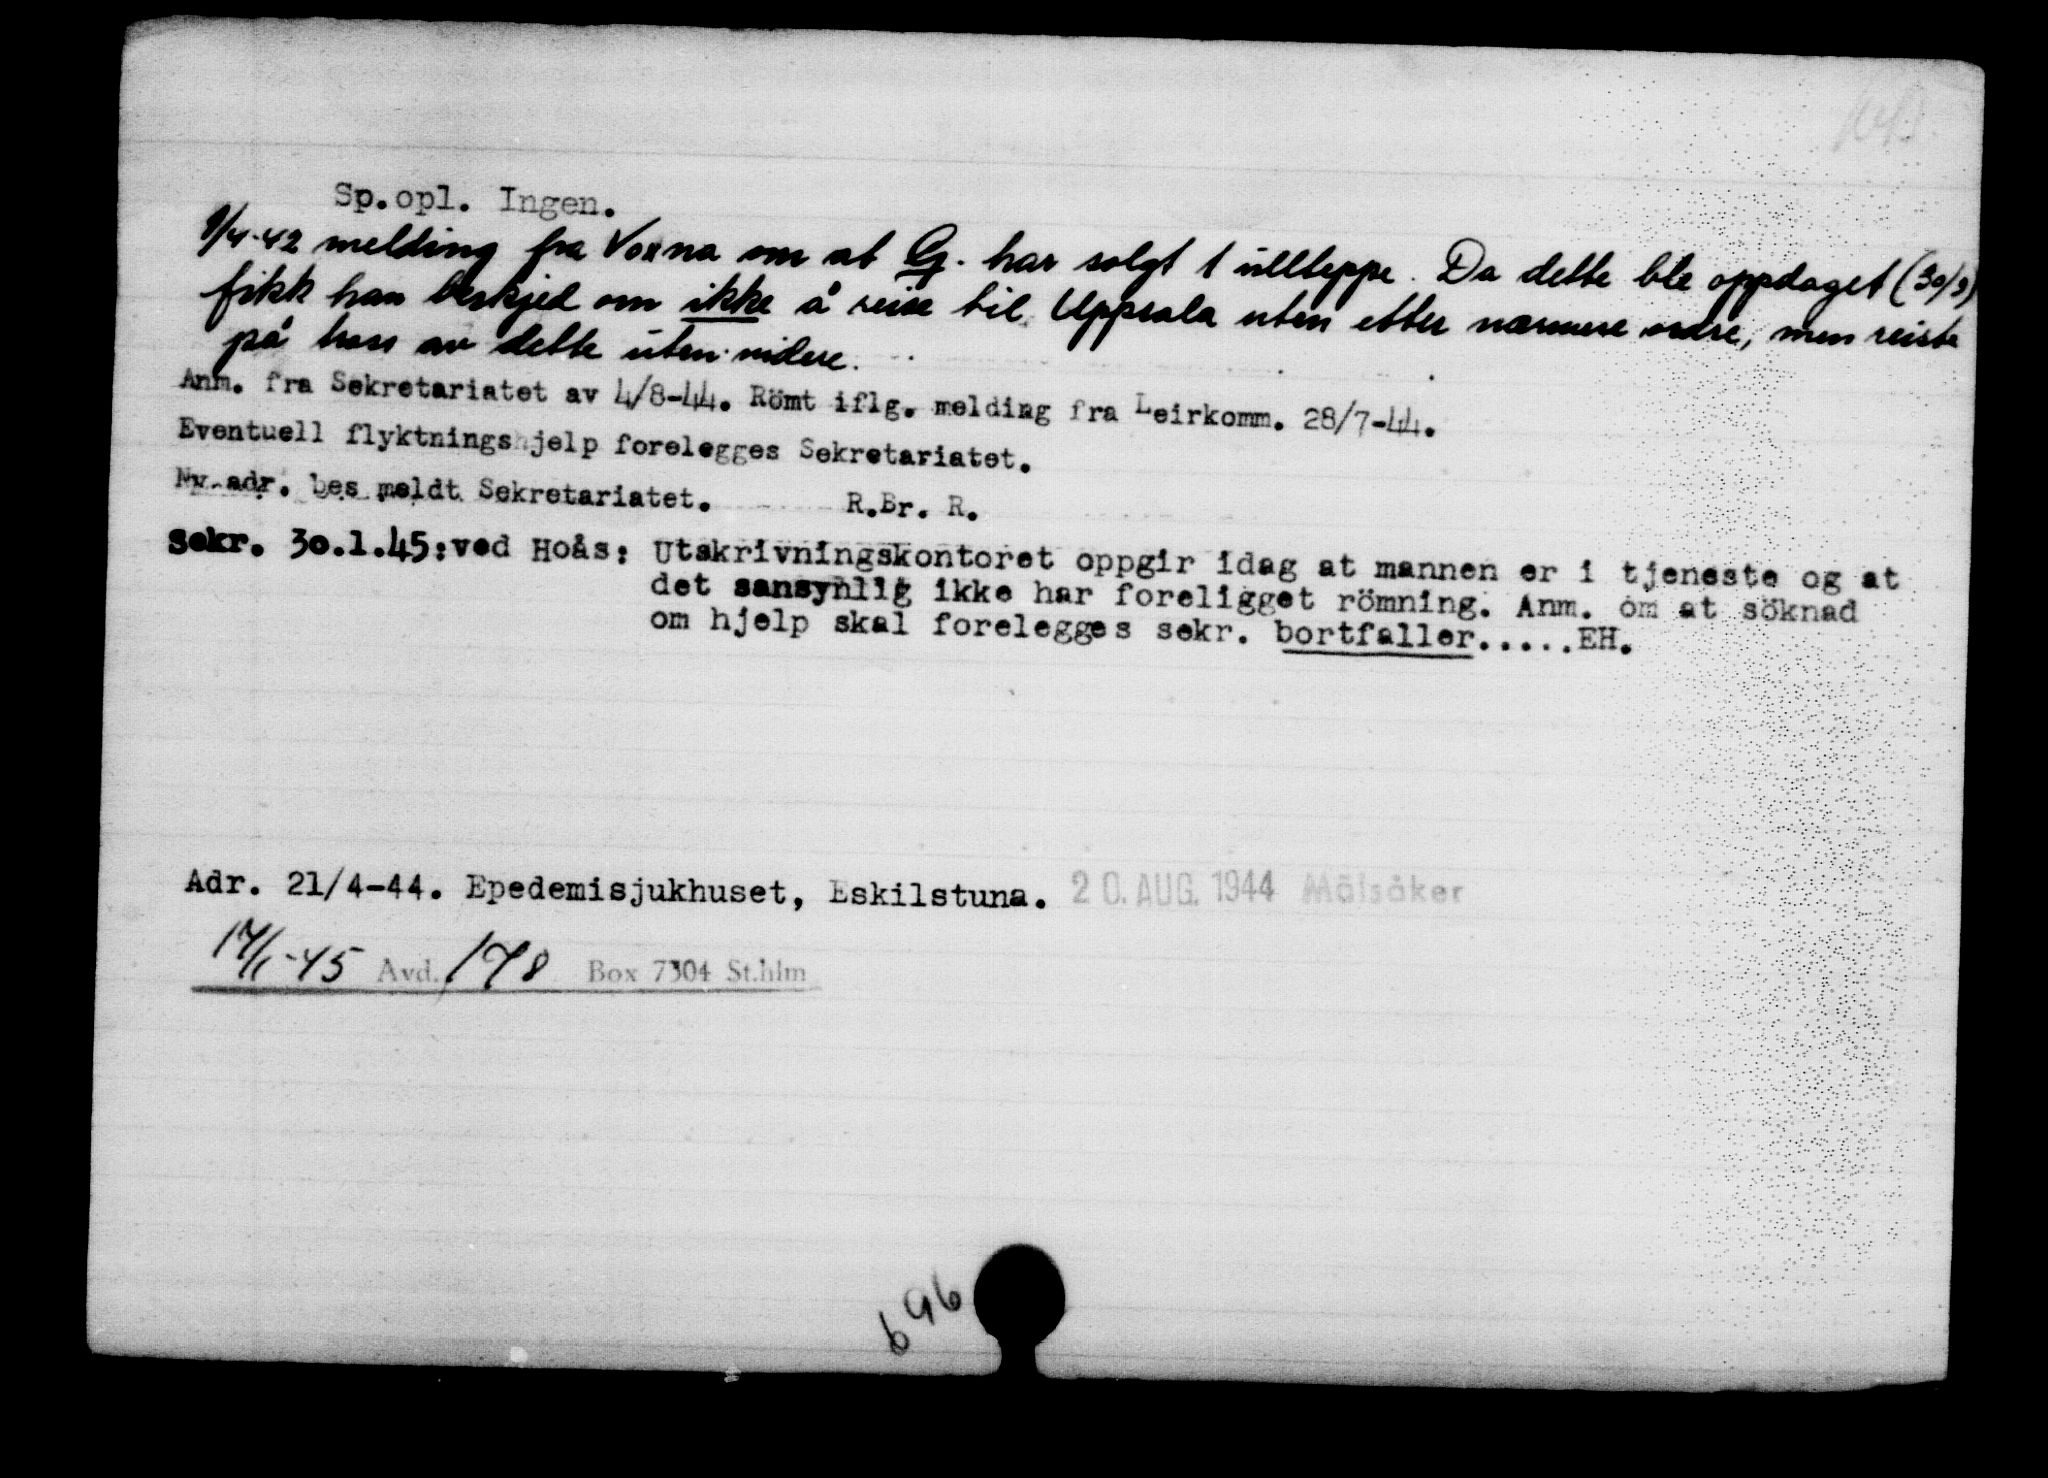 Sp.opl. Ingen.
9/4-42 melding fra Voxna om at G. har solgt 1 ullteppe. Da dette ble oppdaget (30/3)
fikk han beskjed om ikke å reise til Uppsala uten etter nærmere ordre, men reiste
på tross av dette uten videre.
Anm. fra Sekretariatet av 4/8-44. Römt iflg. melding fra Leirkomm. 28/7-44.
Eventuell flyktningshjelp forelegges Sekretariatet.
Ny adr. bes meldt Sekretariatet. R.Br. R.
Sekr. 30.1.45:ved Hoås: Utskrivningskontoret oppgir idag at mannen er i tjeneste og at
det sansynlig ikke har foreligget römning. Anm. om at söknad
om hjelp skal forelegges sekr. bortfaller.....EH.
Adr. 21/4-44. Epedemisjukhuset, Eskilstuna. 20. AUG. 1944 Mälsåker
17/1-45 Avd. 178 Box 7304 St.hlm
696